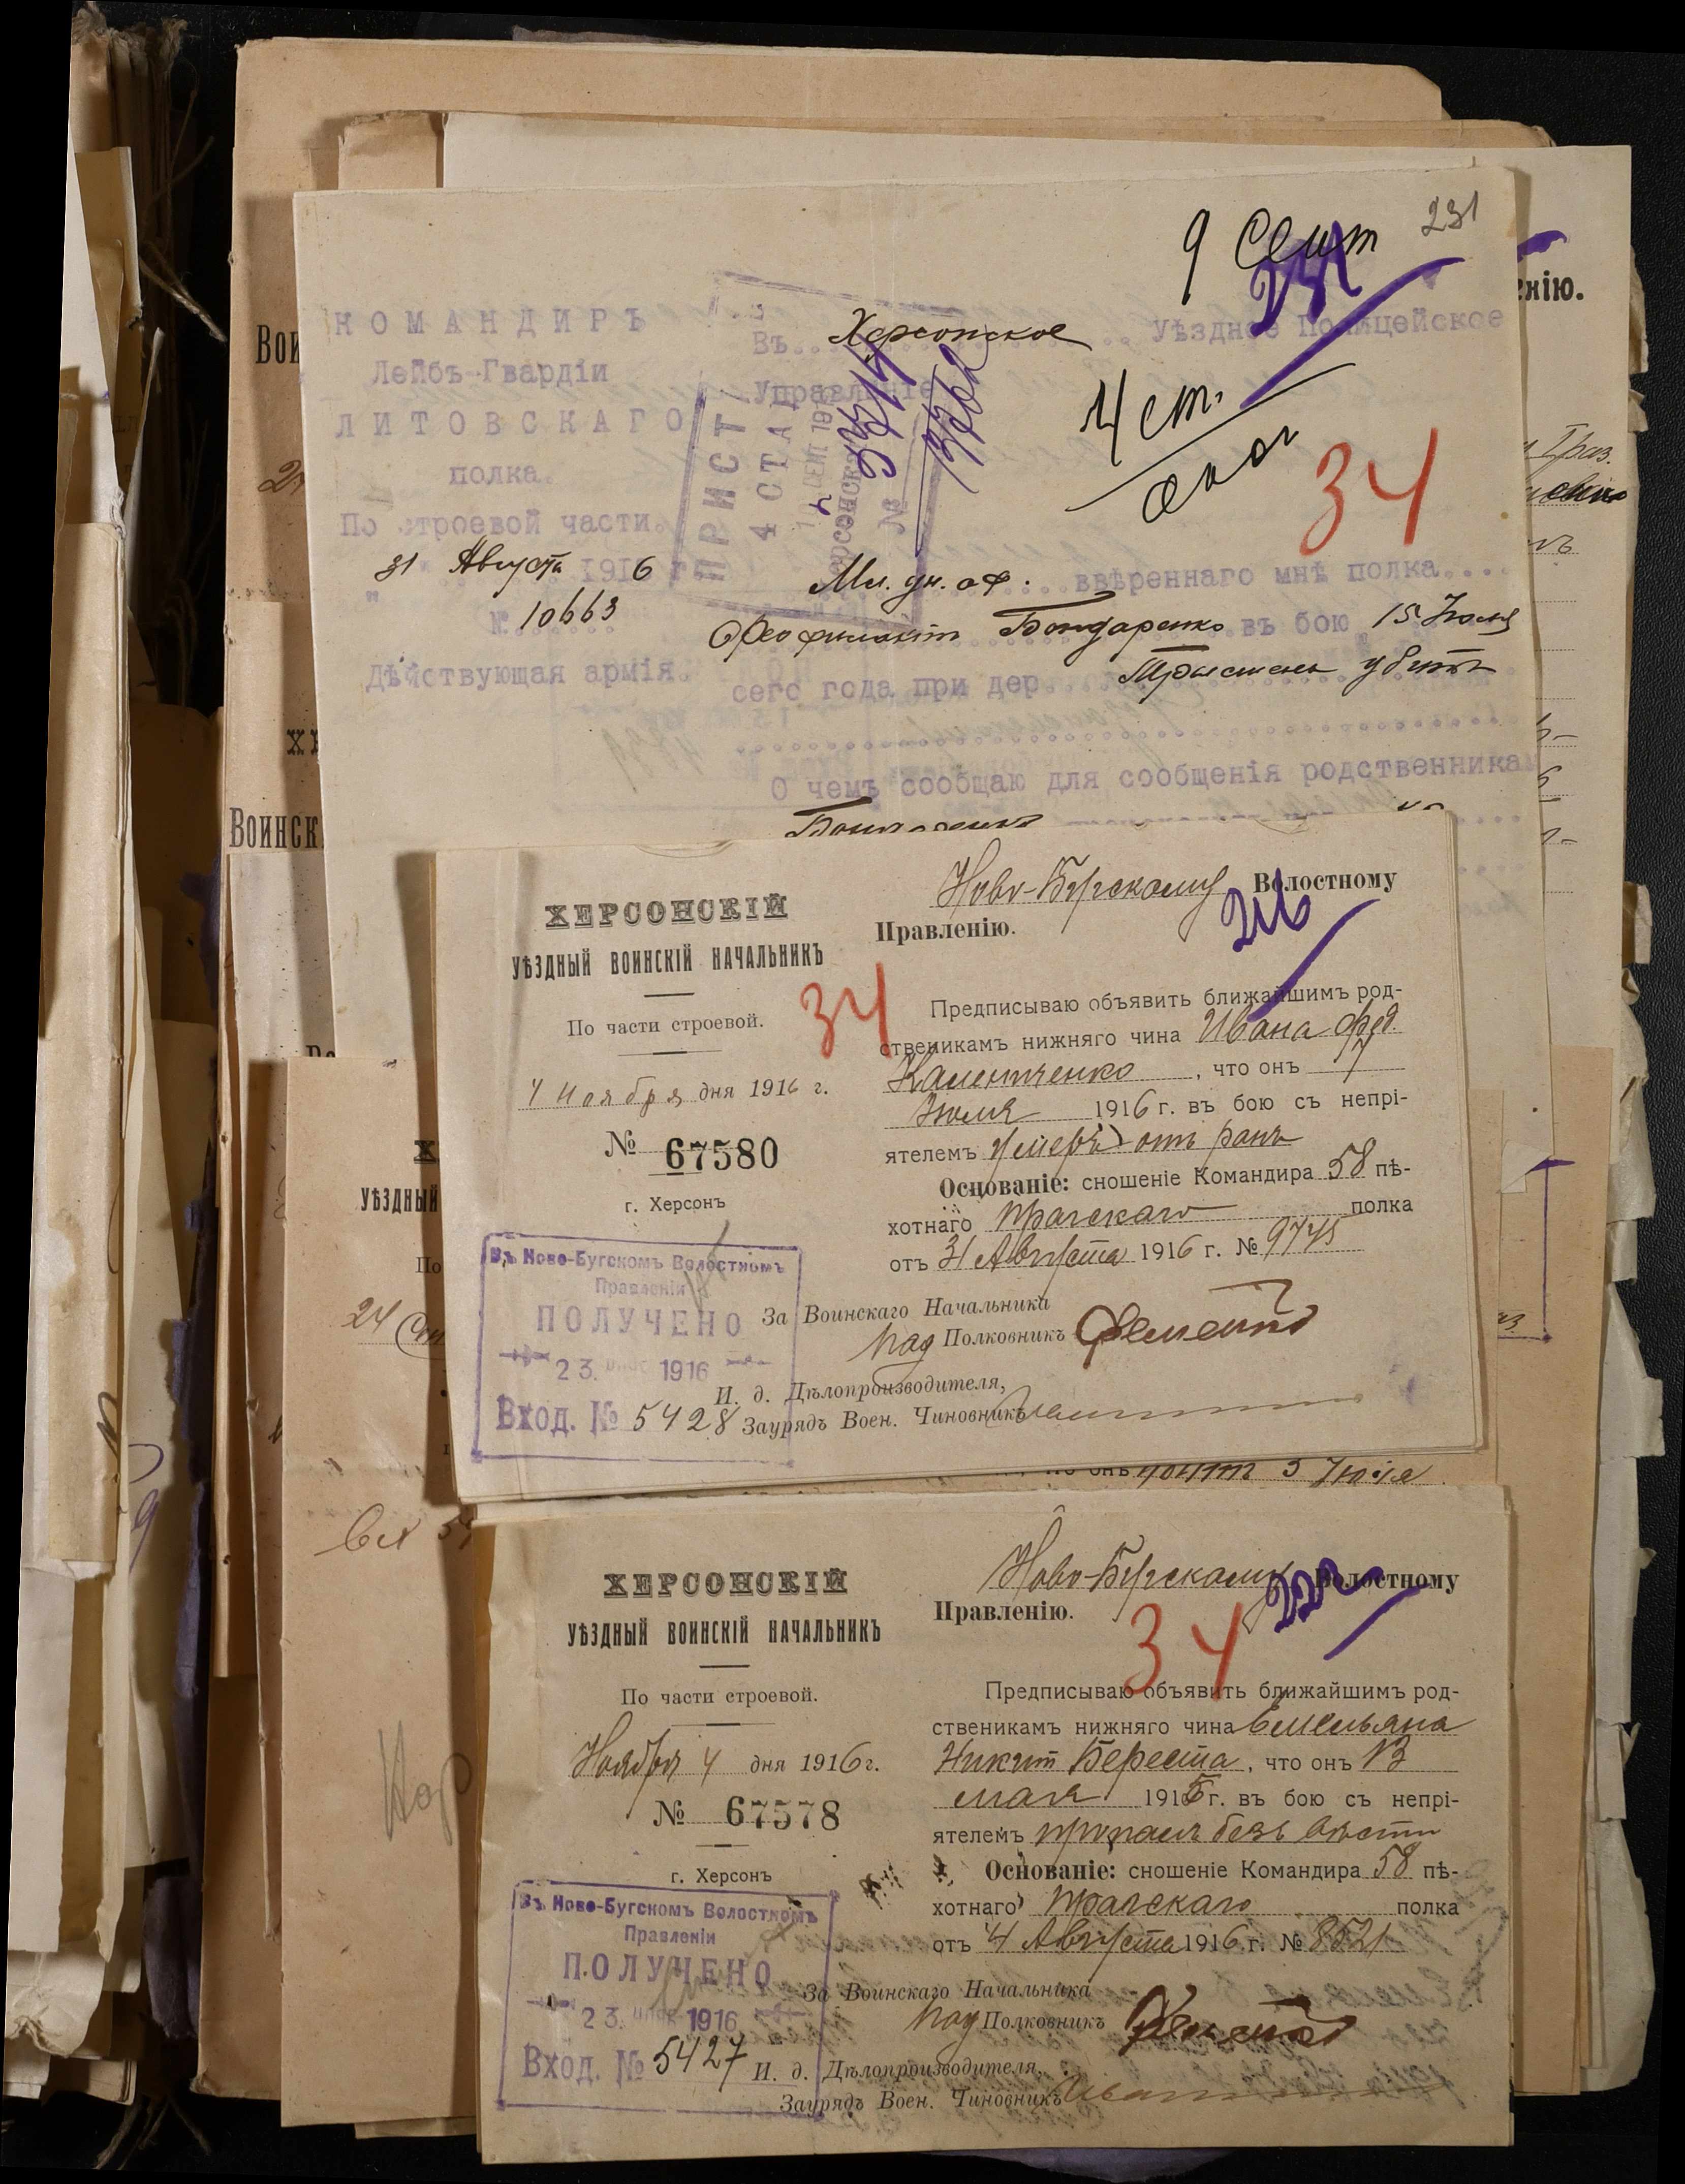 231
9 Сент
231
КОМАНДИРЪ
Лейбъ-Гвардіи
ЛИТОВСКАГО
полка.
По строевой части.
31 Августа 1916 г
№ 10663
Дѣйствующая армія.
Въ Херсонское Уѣздное Полицейское
Управленіе
4 СТАНА
№
4 ст.
34
Мл. ун. оф. ввѣреннаго мнѣ полка
Феофилактъ Бондаренко въ бою 15 Іюля
сего года при дер. Тристень убитъ
О чемъ сообщаю для сообщенія родственникам
енію.
Вои
Воинск
ХЕРСОНСКІЙ
УѢЗДНЫЙ ВОИНСКІЙ НАЧАЛЬНИКЪ
По части строевой.
4 ноября дня 1916 г.
№ 67580
г. Херсонъ
34
Ново-Бугскому Волостному
216
Правленію.
Предписываю объявить ближайшимъ род-
ственикамъ нижняго чина Ивана Фед.
Калениченко, что онъ 7
Іюля 1916 г. въ бою съ непрі-
ятелемъ умеръ отъ ранъ
Основаніе: сношеніе Командира 58 пѣ-
хотнаго Прагскаго полка
отъ 31 Августа 1916 г. № 9745
За Воинскаго Начальника
Под Полковникъ
И. д. Дѣлопроизводителя,
Заурядъ Воен. Чиновникъ
Въ Ново-Бугскомъ Волостномъ
Правленіи
ПОЛУЧЕНО
23 1916
Вход. № 5428
УѢЗДНЫЙ
По
24 Сен
онъ 3 Іюля
ХЕРСОНСКІЙ
УѢЗДНЫЙ ВОИНСКІЙ НАЧАЛЬНИКЪ
По части строевой.
Ноября 4 дня 1916 г.
№ 67578
г. Херсонъ
Ново-Бугскому Волостному
222
Правленію.
34
Предписываю объявить ближайшимъ род-
ственикамъ нижняго чина Емельяна
Никит Береста, что онъ 13
мая 1915 г. въ бою съ непрі-
ятелемъ пропалъ безъ вѣсти
Основаніе: сношеніе Командира 58 пѣ-
хотнаго Прагскаго полка
отъ 4 Августа 1916 г. № 8521
За Воинскаго Начальника
Под Полковникъ
И. д. Дѣлопроизводителя,
Заурядъ Воен. Чиновникъ
Въ Ново-Бугскомъ Волостномъ
Правленіи
ПОЛУЧЕНО
23 1916
Вход. № 5427